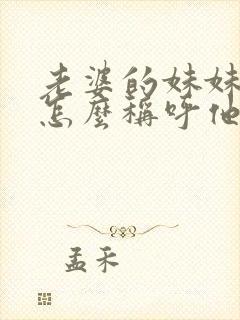 老婆的妹妹
怎麼稱呼他
孟禾